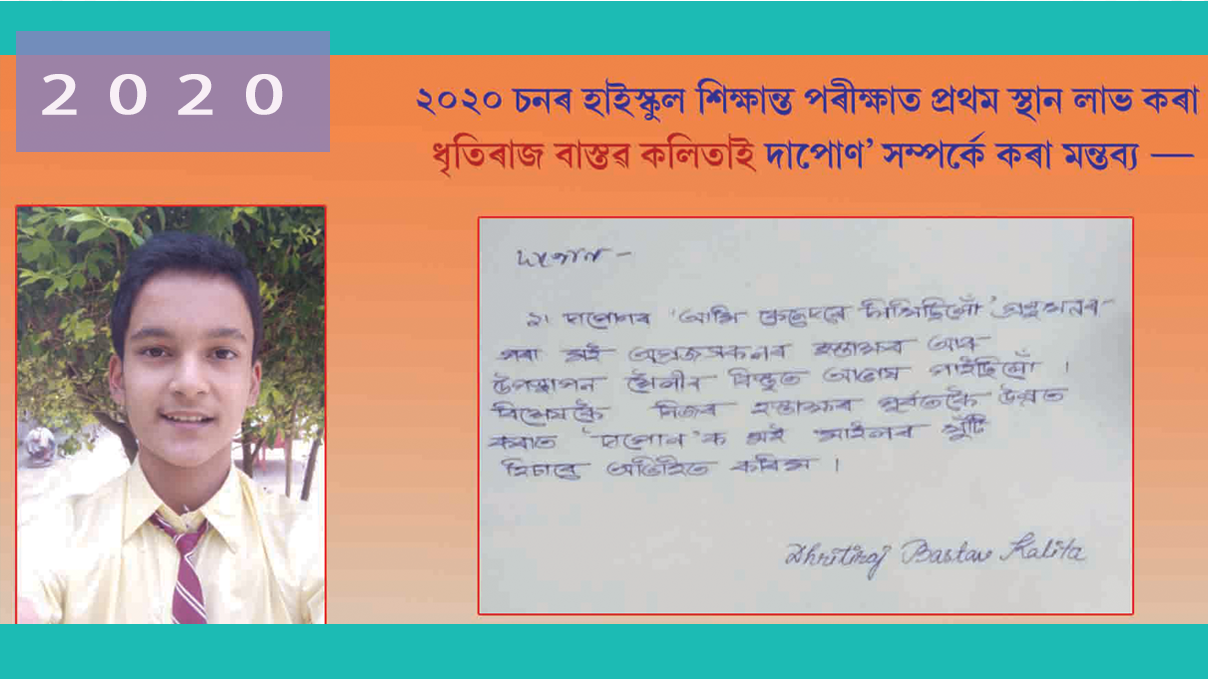 2020
২০২০ চনৰ হাইস্কুল শিক্ষান্ত পৰীক্ষাত প্ৰথম স্থান লাভ কৰা
ধৃতিৰাজ বাস্তৱ কলিতাই দাপোণ’ সম্পৰ্কে কৰা মন্তব্য —
দাপোন –
২৷ দাপোনৰ 'আমি কেনেদৰে লিখিছিলোঁ'
পৰা মই অগ্ৰজসকলৰ হস্তাক্ষৰ আৰু
উপস্থাপন শৈলীৰ বিস্তৃত আভাস পাইছিলোঁ ।
বিশেষকৈ নিজৰ হস্তাক্ষৰ পূৰ্বতকৈ উন্নত
কৰাত 'দাপোন'ক মই মাইলৰ খুঁটি
হিচাবে অভিহিত কৰিম ।
Dhritiraj Bastav Kalita